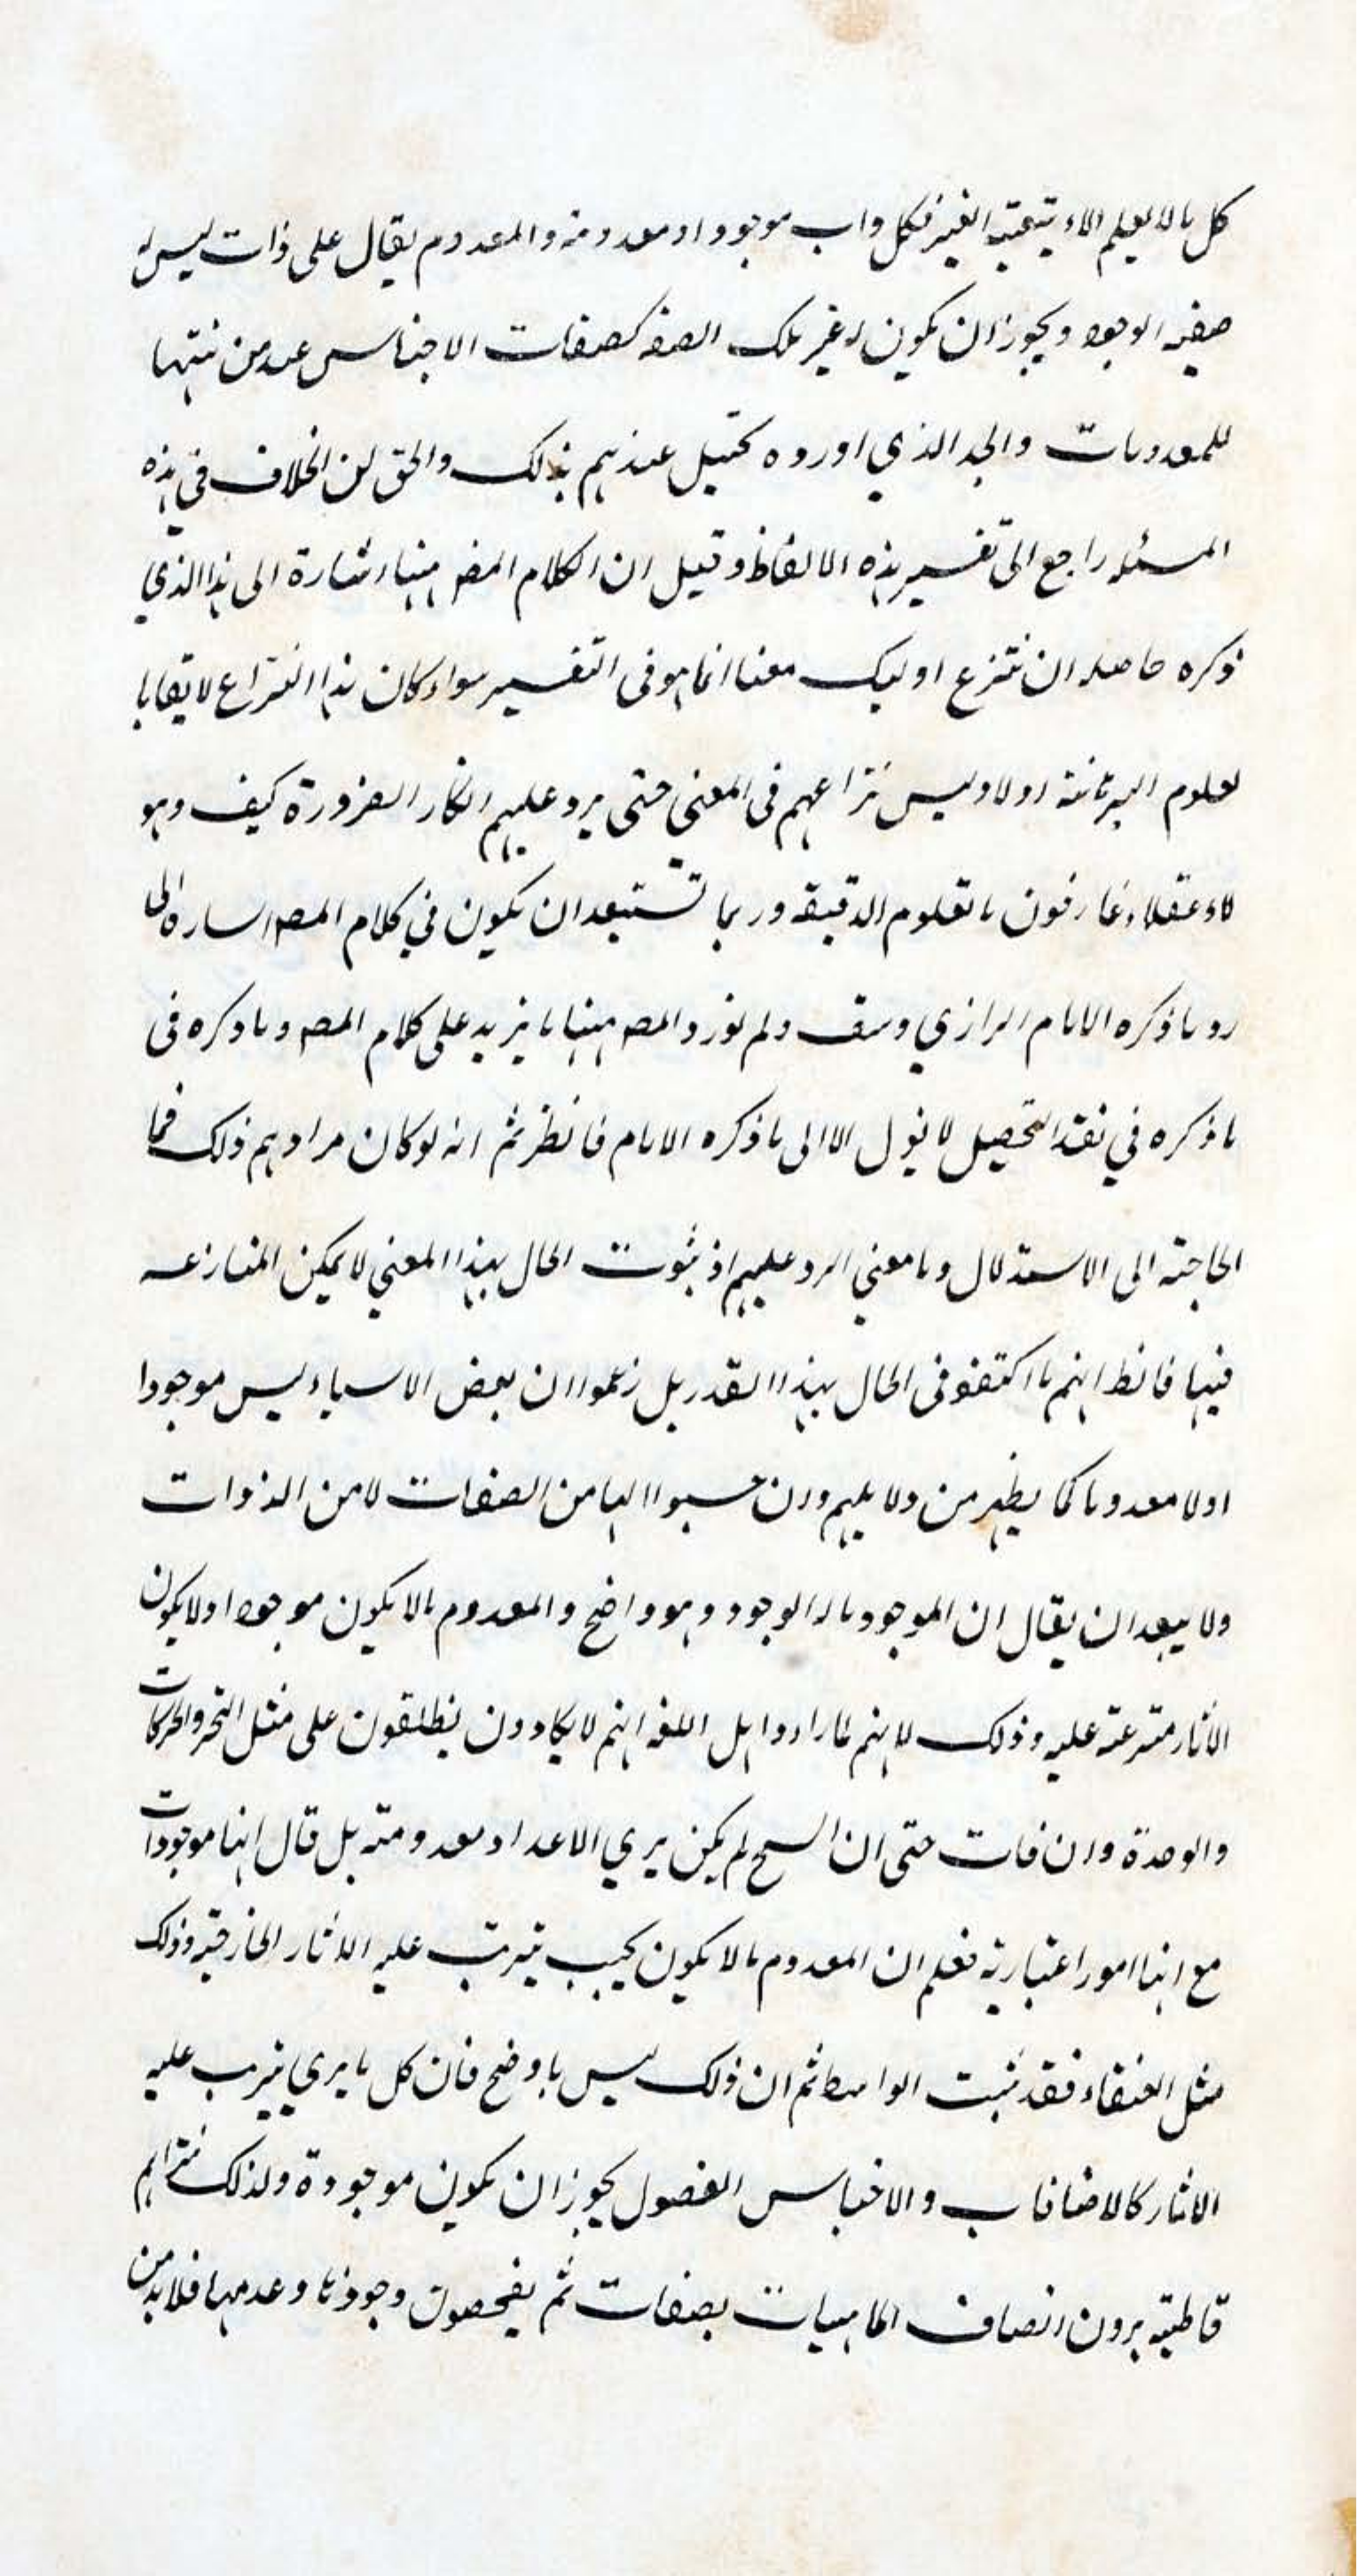 كل ما لا يعلم الا بتبعية الغير فكل ذات موجود او معدومة والمعدوم يقال على ذات ليس له
صفة الوجود ويجوز ان يكون له غير تلك الصفه كصفات الاجناس عند من يثبتها
للمعدومات والحد الذي اورده تختل عندهم بذلك والحق ان الخلاف في هذه
المسئله راجع الى تفسير هذه الالفاظ وقيل ان الكلام المصـ ههنا اشارة الى هذا الذي
ذكره حاصله ان نتزع اوليك معنا انما هو في التفسير سواء كان هذا النزاع لايقا با
لعلوم البرهانية اولا وليس نزاعهم في المعني حتى يرد عليهم انكار الضرورة كيف وهو
لاء عقلاء عارفون بالعلوم الدقيقه وربما تستبعد ان يكون في كلام المصـ اشاره الى
رد ما ذكره الامام الرازي ولم يورد المصـ ههنا ما يزيد على كلام المصـ وما ذكره في
ما ذكره في نقد التحصيل لا يؤل الا الى ما ذكره الامام فانظر ثم انه لو كان مرادهم ذلك فما
الحاجته الى الاستدلال وما معني الرد عليهم اذ ثبوت الحال بهذا المعني لا يمكن المنازعه
فيها فانظ انهم ما اكتفو في الحال بهذا القدر بل زعموا ان بعض الاسياء ليس موجودا
اولا معدوما كما يظهر من دلايلهم وان حسبوا انها من الصفات لا من الذوات
ولا يبعد ان يقال ان الموجود ما له الوجود وهو واضح والمعدوم ما لا يكون موجودا ولا يكون
الاثار مترعته عليه وذلك لانهم لما راءوا اهل اللغه انهم لا يكادون يطلقون على مثل التحر والحركات
والوحدة وان فات حتى ان السح لم يكن يري الاعداد معدومته بل قال انها موجودات
مع انها امور اعتبارية فعلم ان المعدوم ما لا يكون بحيب يترتب عليه الاثار الخارقيه وذلك
مثل العنقاء فقد ثبت الواسطه ثم ان ذلك ليس باوضح فان كل ما يري يترب عليه
الاثار كالاضافاب والاجناس الفصول يجوز ان يكون موجودة ولذلك تراهم
قاطبته يرون اتصاف الماهيات بصفات ثم يفحصون وجودها وعدمها فلابد من